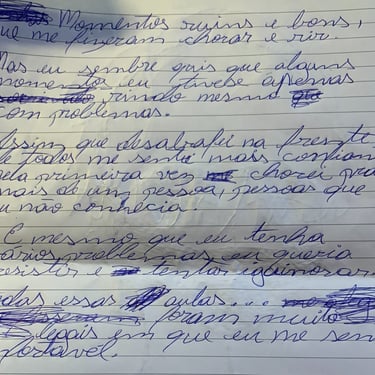 Momentos ruins e bons,
ue me fizeram chorar e rir.
Mas eu sembre quis que alguns
momentos eu tivese apenas
rindo mesmo
com problemas.
Assim que desabafei na frente
de todos me senti mais confian
pela primeira vez chorei pra
mais de um pessoa, pessoas que
u não conhecia.
E mesmo que eu tenha
vários problemas eu queria
esistir e tentar
odas essas aulas...
foram muito
legais em que eu me sen
fortável.